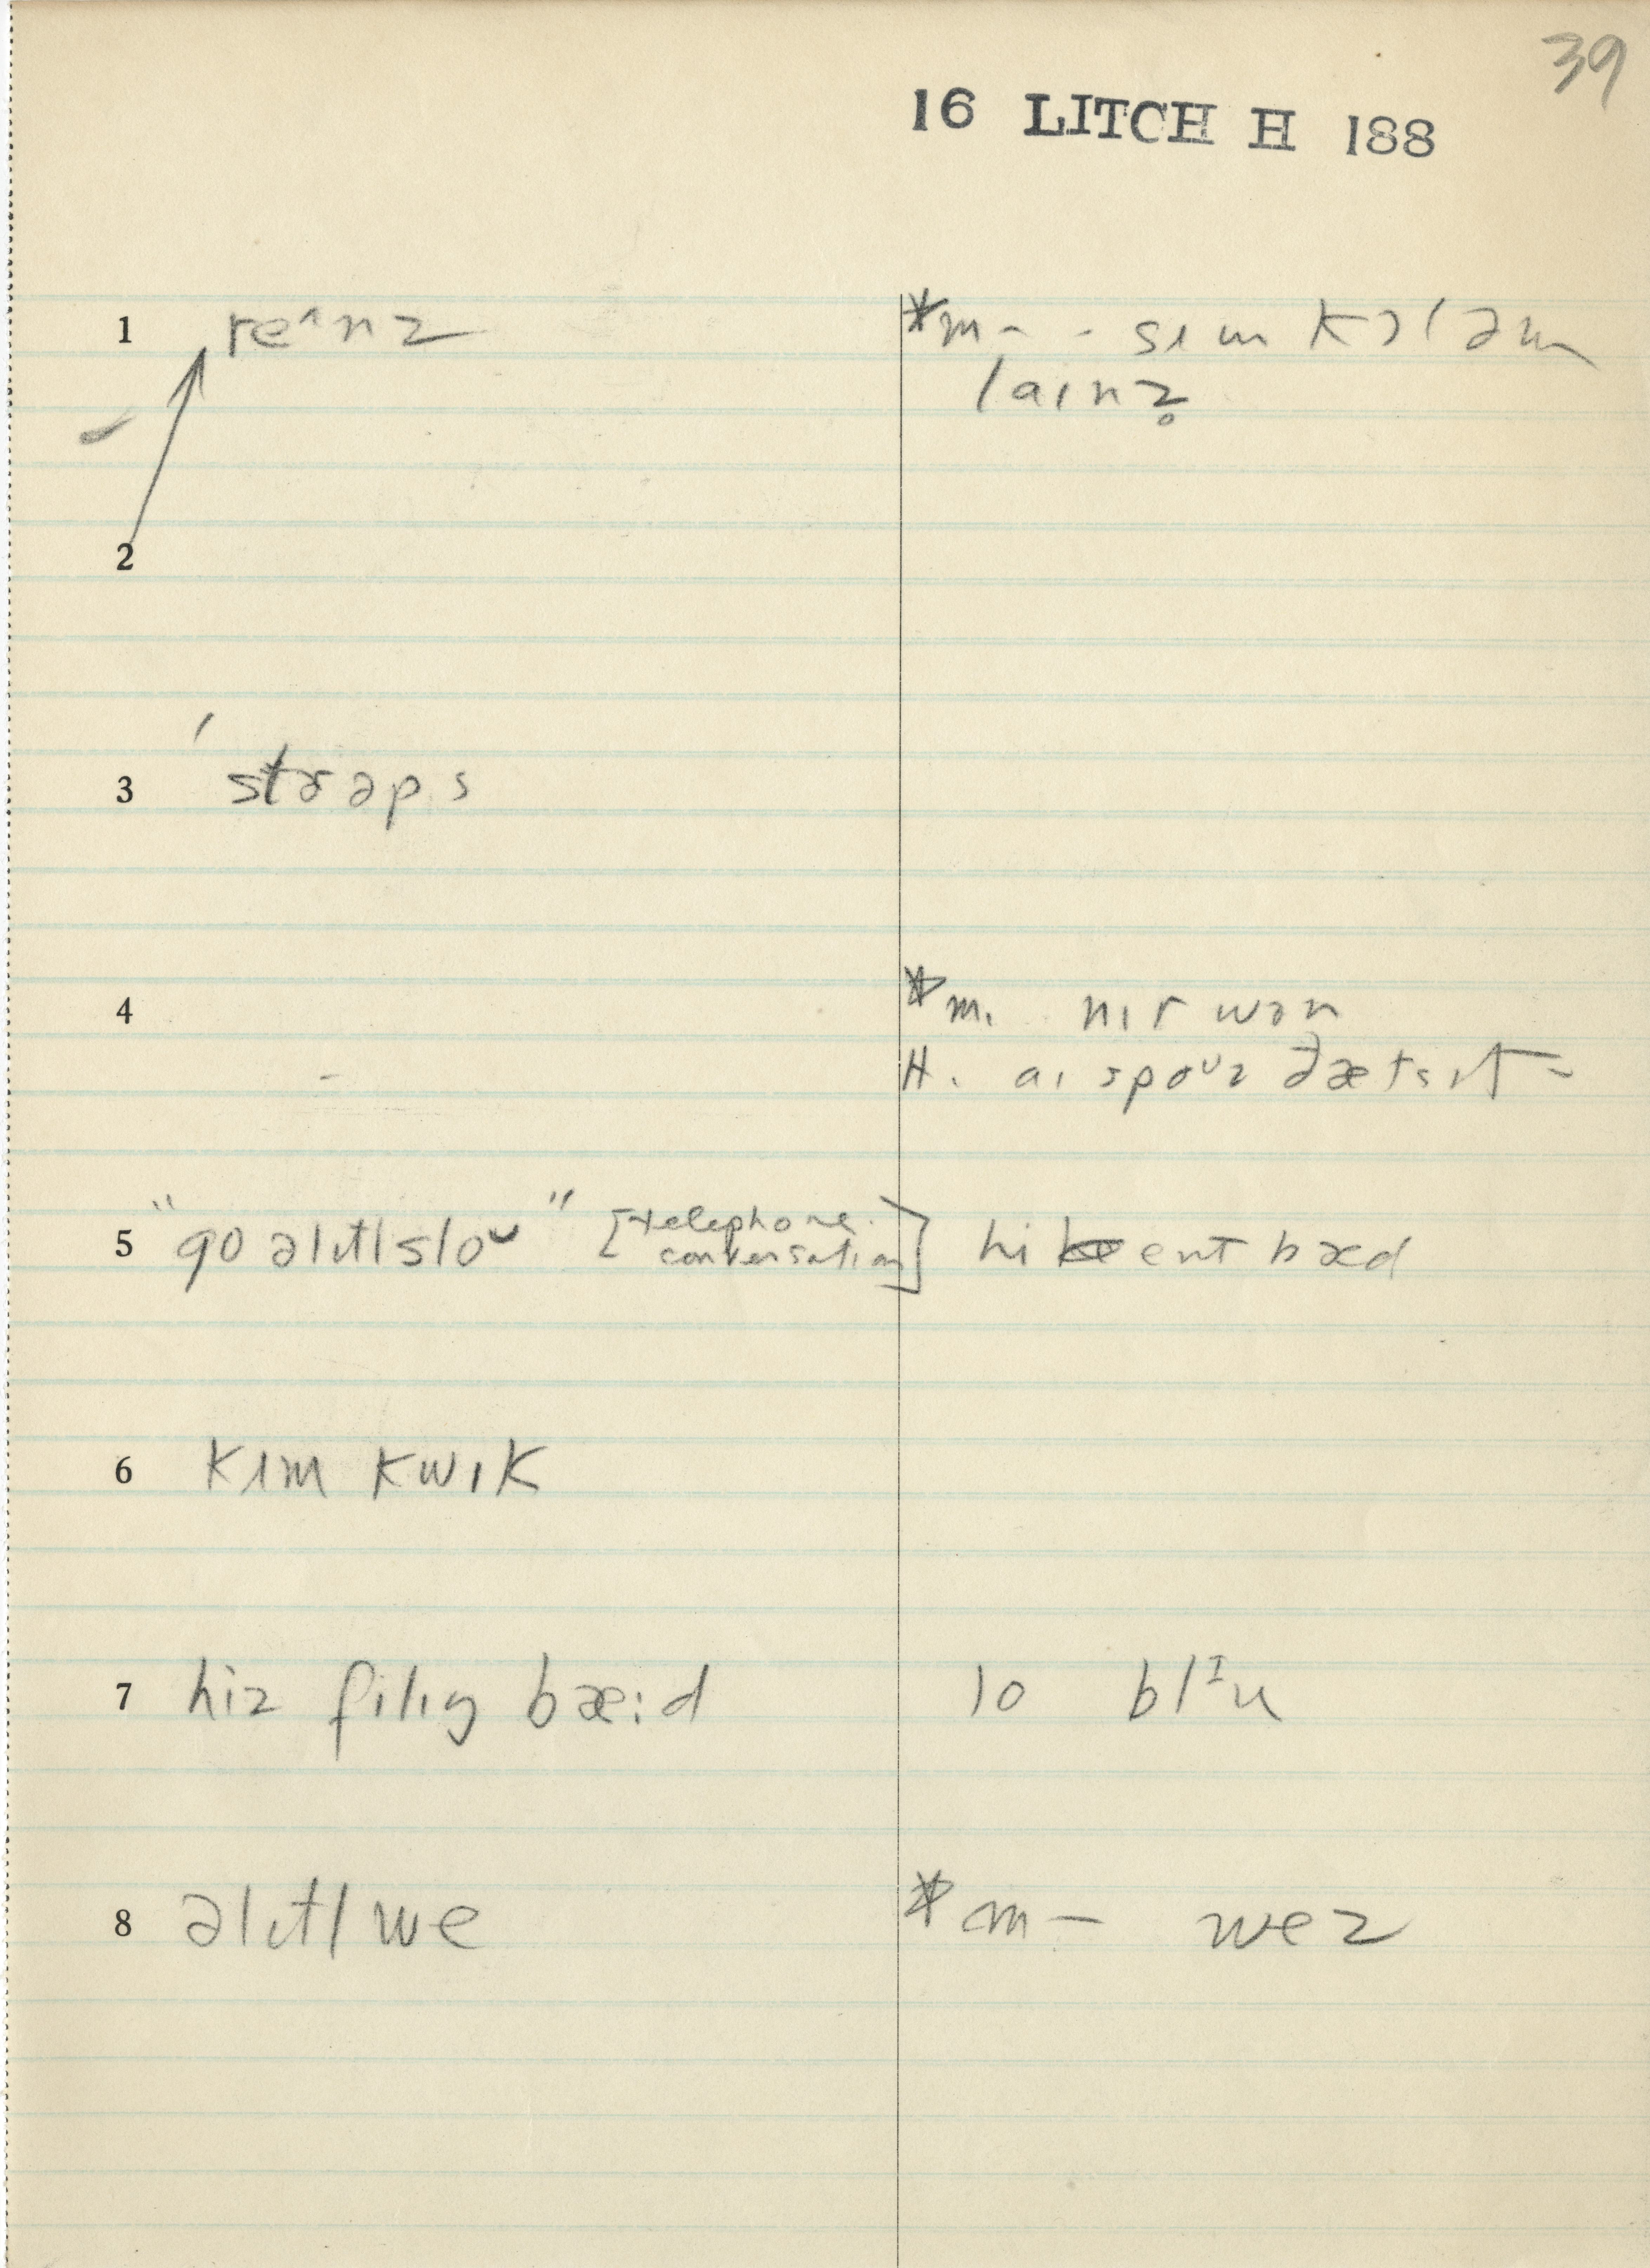 39
16 LITCH H 188
1 re^nz
*m - - sɪ m kɔləm
laɪnz̥
2
3 'strəps
4
*m. nɪr wən
H. aɪ spoᴜz ðæts ɪt -
5 "go əlɪtl sloᴜ" [telephone conversation] hi ent bæd
6 kɪm kwɪk
7 hiz filɪŋ bæ:d lo blᴵu
8 əlɪtl we *m — wez